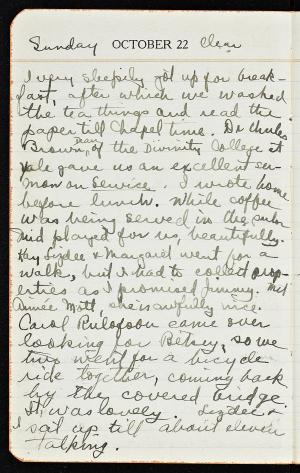 Sunday OCTOBER 22 Clear
I very sleepily got up for break-
fast, after which we washed
the tea things and read the
paper till Chapel time. Dr Charles
Brown, Dean of the Divinity College at
Yale gave us an excellent ser-
mon on Service. I wrote home
before lunch. While coffee
was being served in the parlor
Mid played for us, beautifully.
Kay Lizdee & Margaret went for a
walk, but I had to collect prop-
erties as I promised Jimmy. Met
Aimée Mott, she is awfully nice.
Carol Rulofson came over
looking for Betsy, so we
two went for a bicycle
ride together, coming back
by the covered bridge.
It was lovely. Lizdee &
I sat up till about eleven
talking.